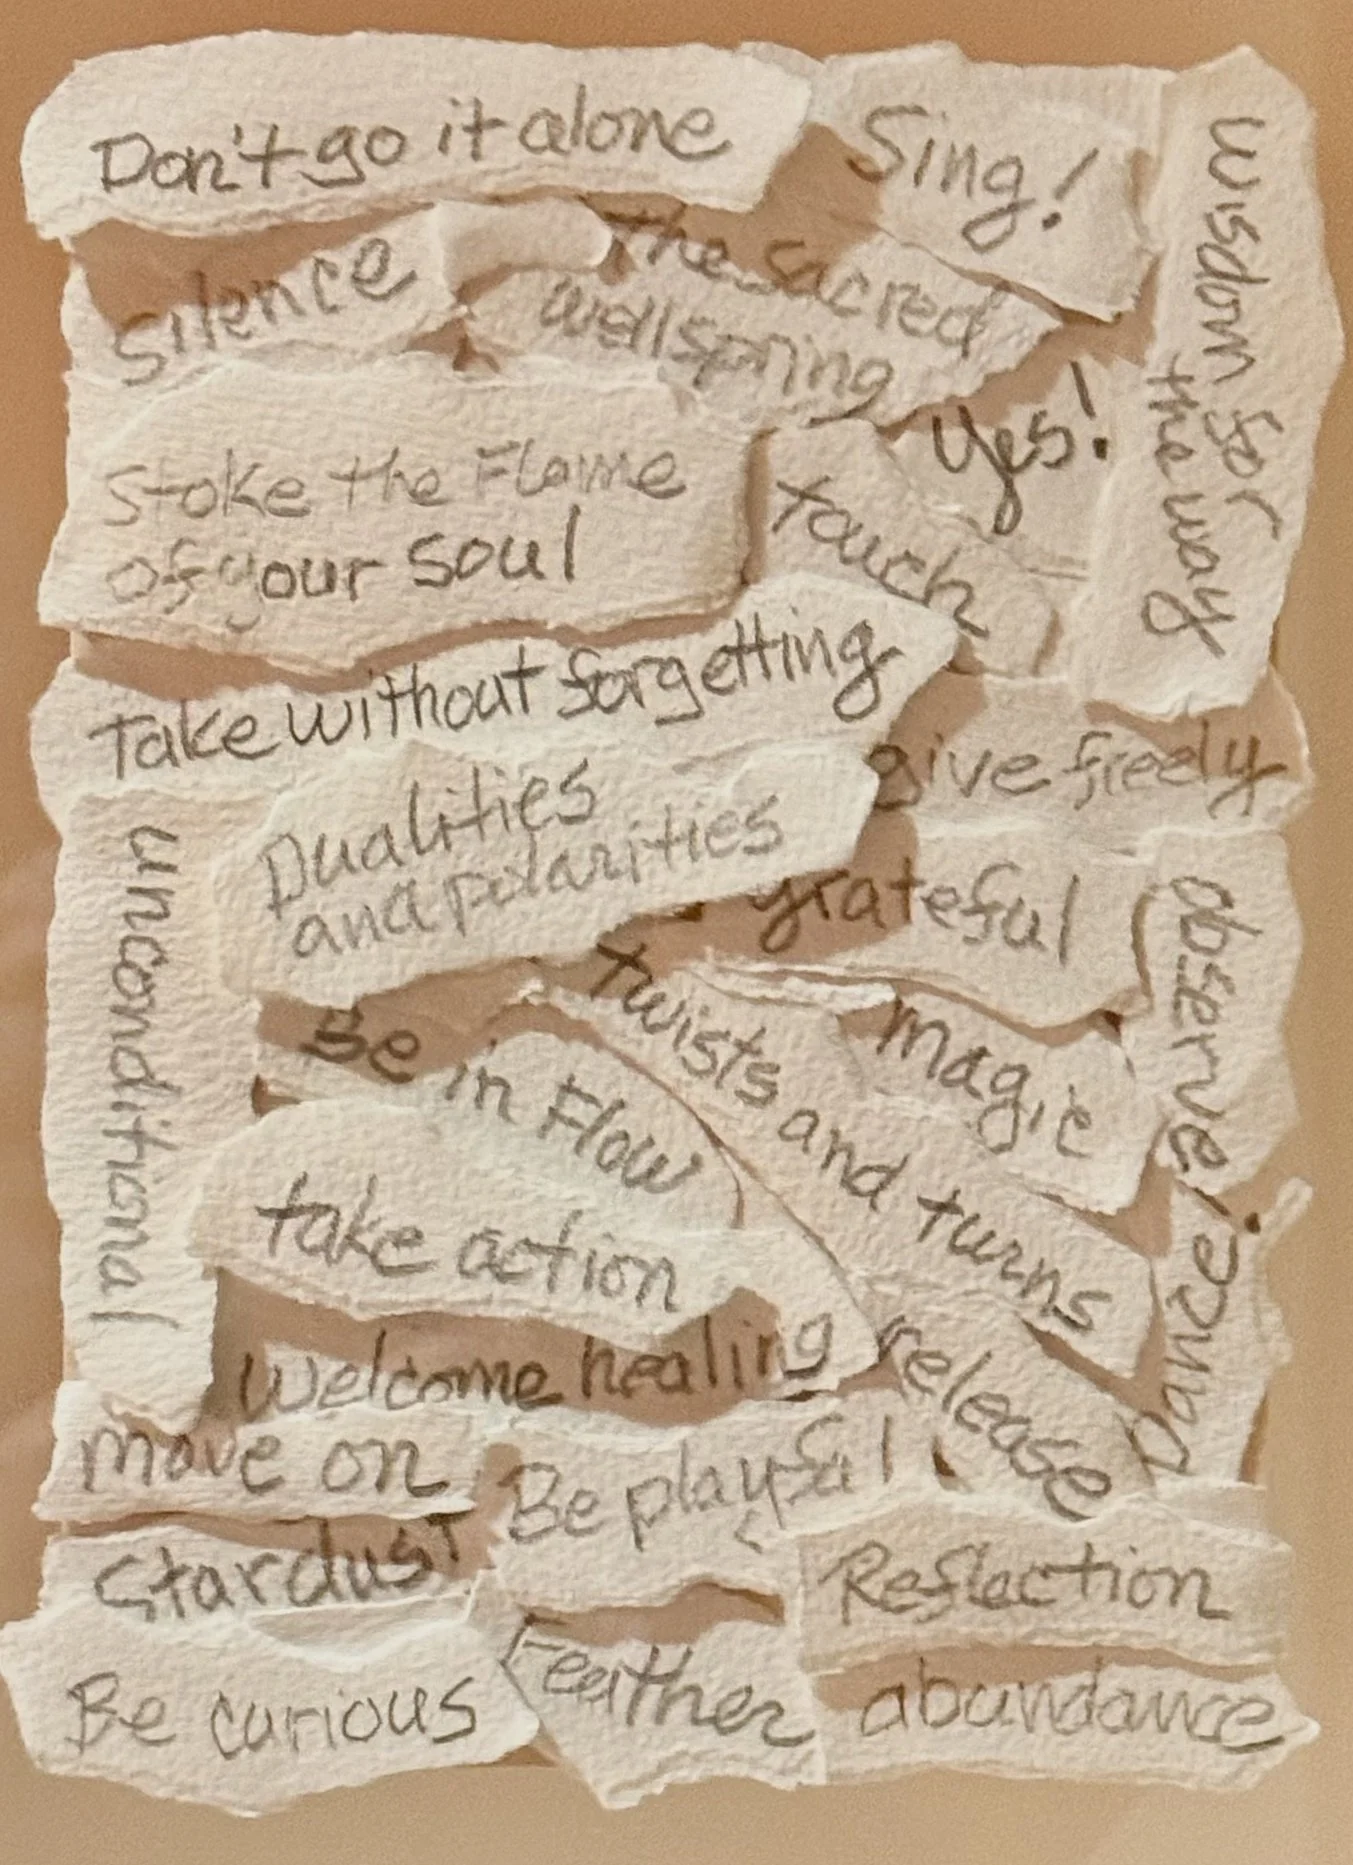 Don't go it alone
Sing!
Wisdom for
the way
Silence
the sacred
wellspring
Yes!
Stoke the Flame
of your soul
touch
Take without forgetting
give freely
Dualities
and polarities
unconditional
grateful
observe
twists and turns
magic
Be in Flow
take action
Dance!
welcome healing
release
move on
Be playful
Stardust
Reflection
Be curious
Feather
abundance